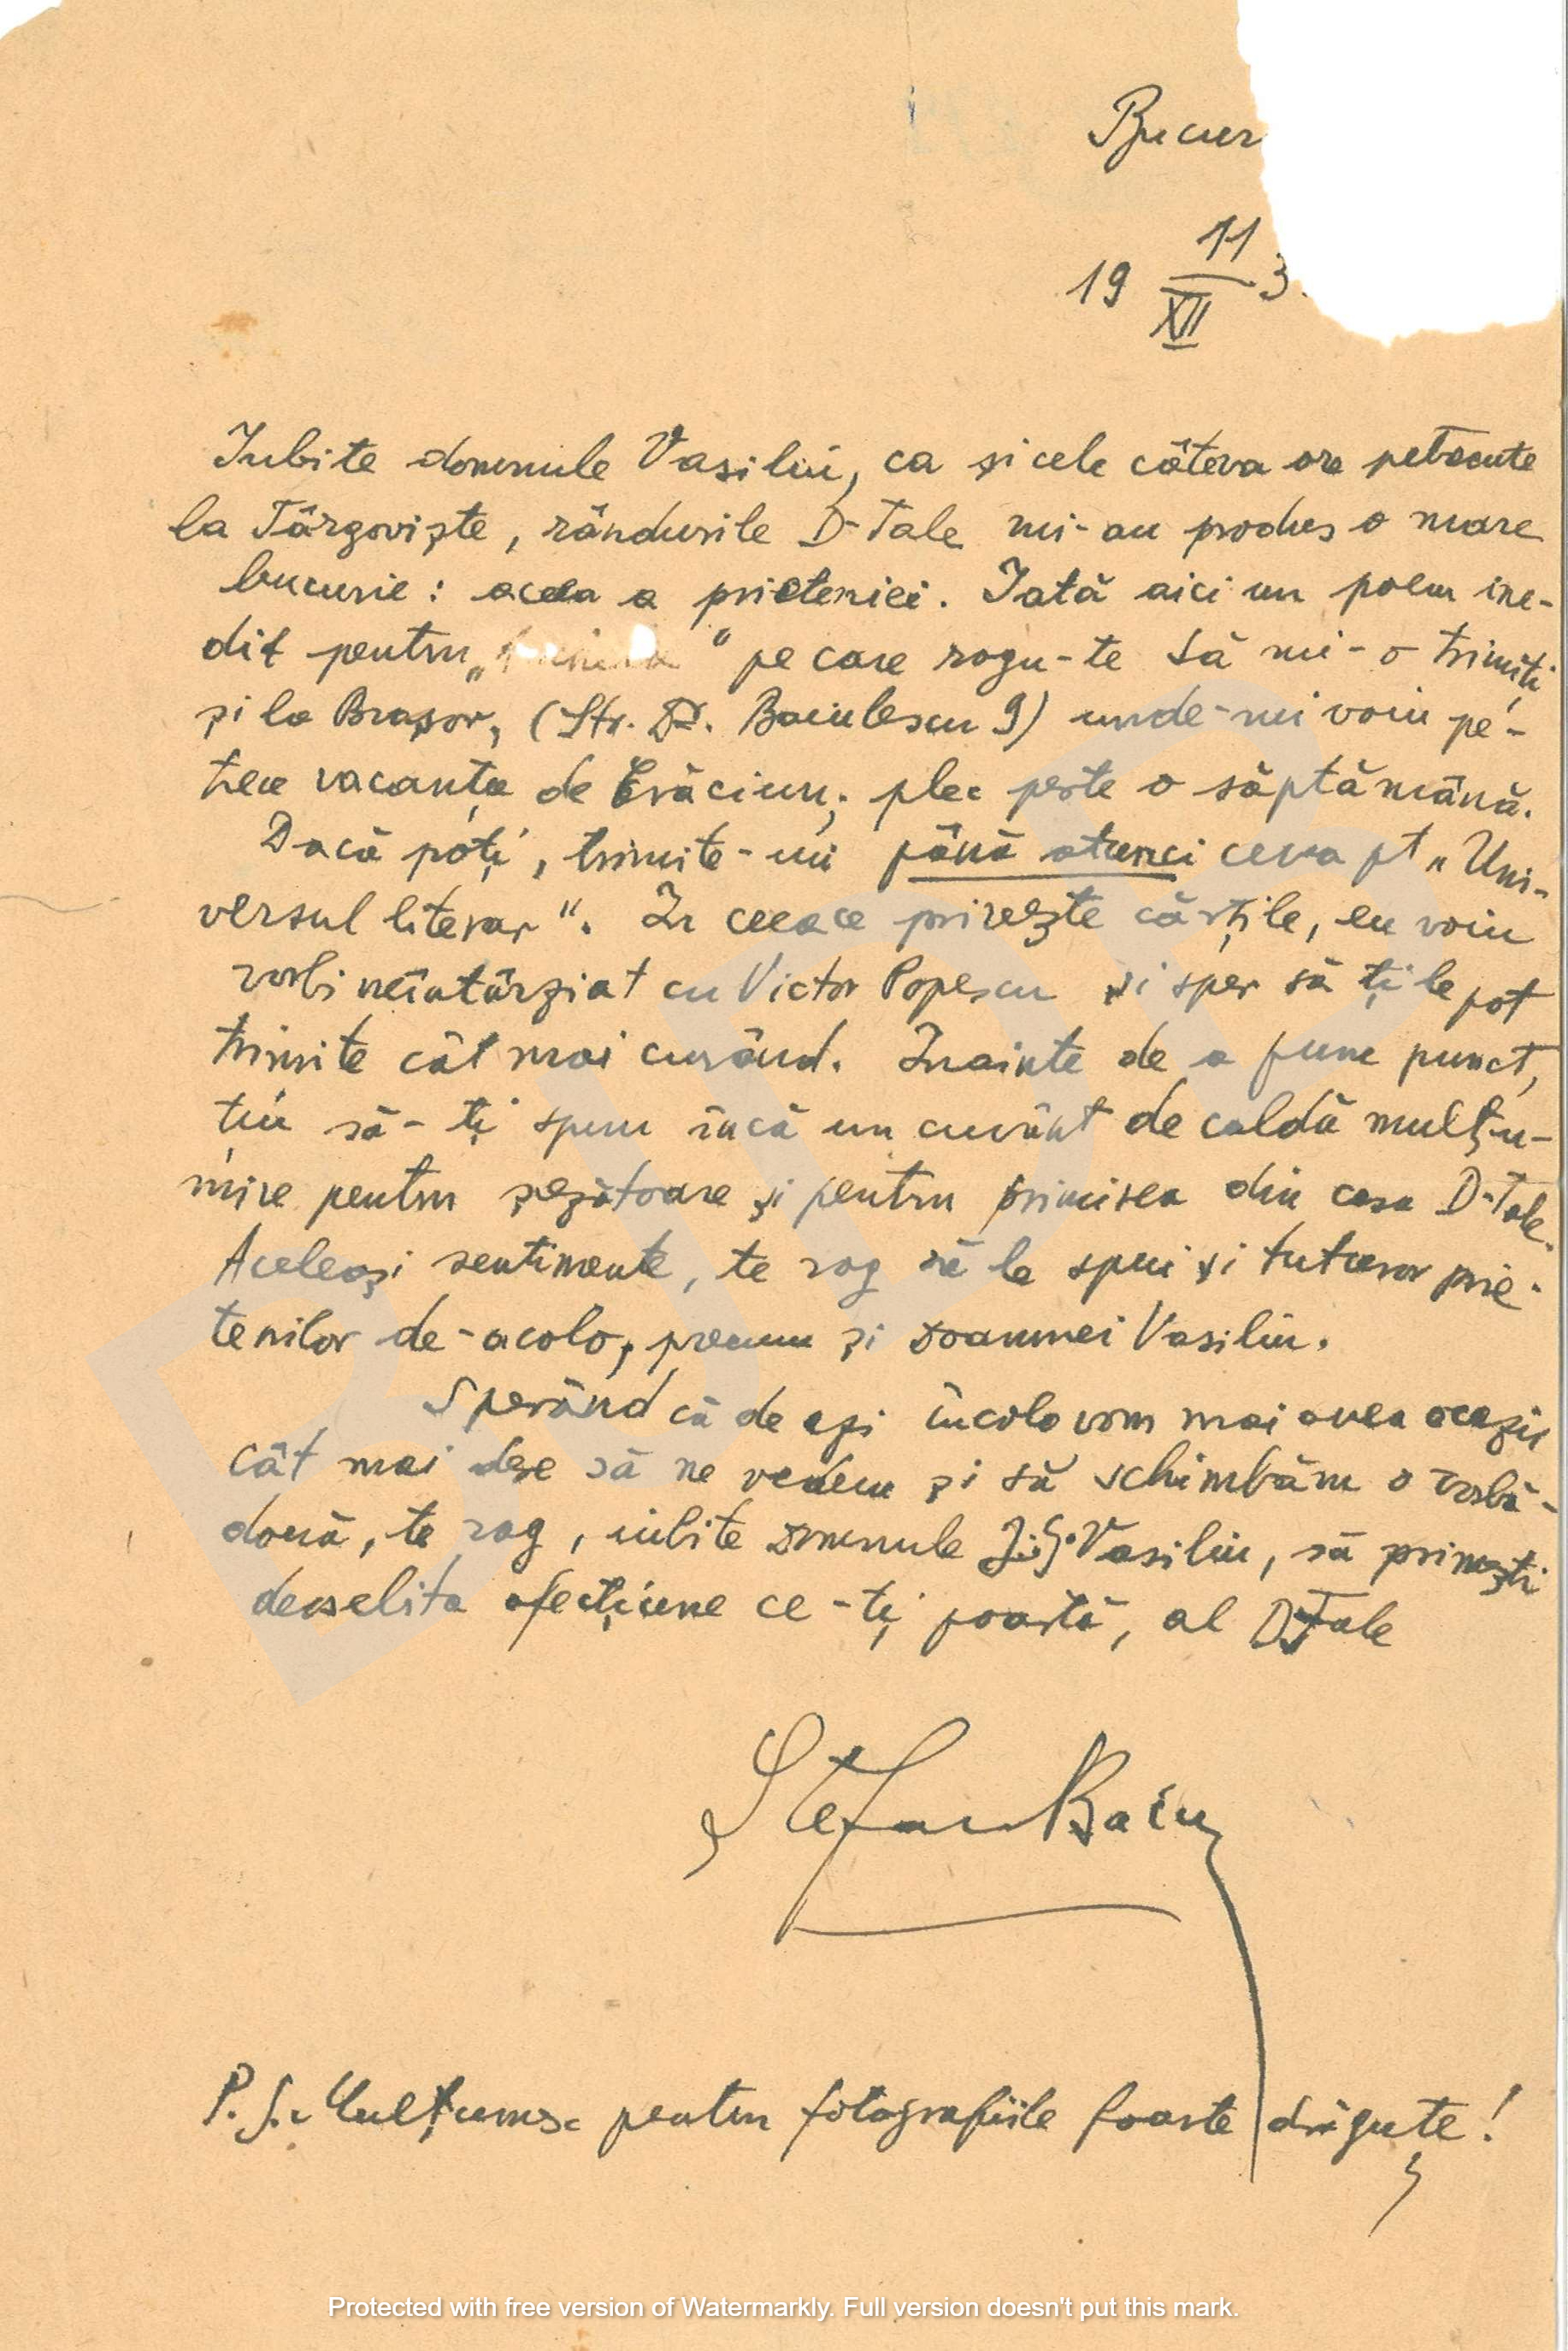 Bucur
11
19 XII 3.
Iubite domnule Vasiliu, ca și cele câteva ore petrecute
la Târgoviște, rândurile D-Tale mi-au produs o mare
bucurie: aceea a prieteniei. Iată aici un poem ine-
dit pentru „ " pe care rogu-te să mi-o trimiți
și la Brașov, (Str. D. Baiulescu 9) unde-mi voiu pe-
trece vacanța de Crăciun; plec peste o săptămână.
Dacă poți, trimite-mi până atunci ceva pt „Uni-
versul literar". In ceeace privește cărțile, eu voiu
vorbi neîntârziat cu Victor Popescu și sper să ți le pot
trimite cât mai curând. Inainte de a pune punct,
țiu să-ți spun încă un cuvânt de caldă mulțu-
mire pentru șezătoare și pentru primirea din casa D-Tale.
Aceleași sentimente, te rog să le spui și tuturor prie-
tenilor de-acolo, precum și doamnei Vasiliu.
Sperând că de azi încolo vom mai avea ocazii
cât mai dese să ne vedem și să schimbăm o vorbă-
două, te rog, iubite domnule I. G. Vasiliu, să primești
deoselita afecțiune ce-ți poartă, al D-Tale
Stefan Baciu
P. S. Mulțumesc pentru fotografiile foarte drăguțe!
Protected with free version of Watermarkly. Full version doesn't put this mark.